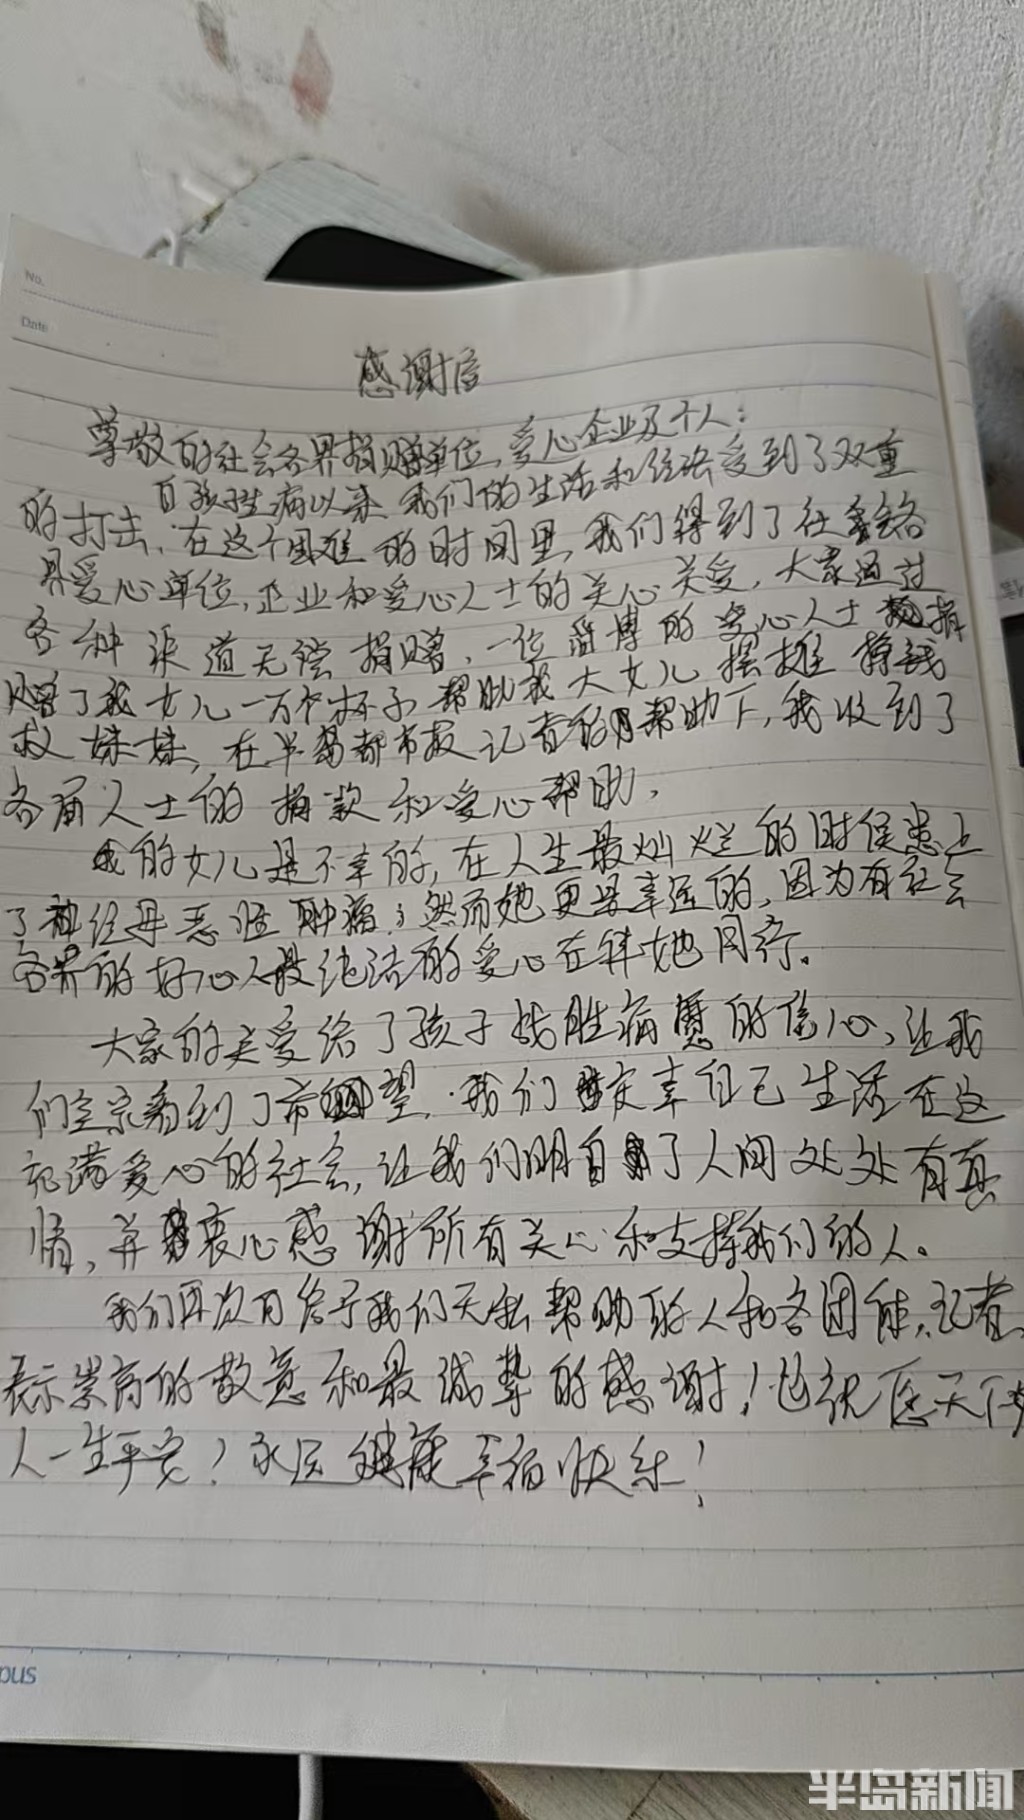 No.
Date
感谢信
尊敬的社会各界捐赠单位、爱心企业及个人：
自孩子生病以来，我们的生活和经济受到了双重
的打击，在这个困难的时间里，我们得到了社会各
界爱心单位，企业和爱心人士的关心关爱，大家通过
各种渠道无偿捐赠，一位淄博的爱心人士捐
赠了我女儿一万个杯子帮助我大女儿摆摊挣钱
救妹妹，在半岛都市报记者的帮助下，我收到了
各届人士的捐款和爱心帮助，
我的女儿是不幸的，在人生最灿烂的时侯患上
了神经母恶性肿瘤；然而她更是幸运的，因为有社会
各界的好心人最纯洁的爱心在伴她同行。
大家的关爱给了孩子战胜病魔的信心，让我
们全家看到了希望，我们庆幸自己生活在这
充满爱心的社会，让我们明白了人间处处有真
情，并衷心感谢所有关心和支持我们的人。
我们再次向给予我们无私帮助的人和各团体，记者，
表示崇高的敬意和最诚挚的感谢！也祝愿天下好
人一生平安！永远健康幸福快乐！
pus
半岛新闻